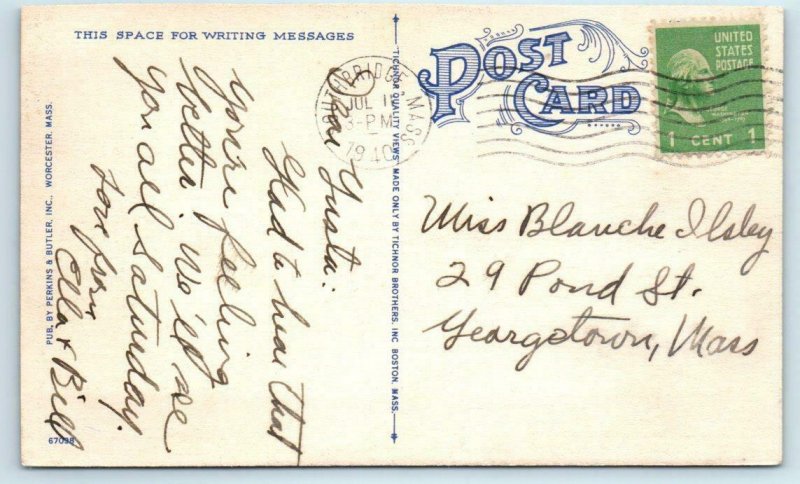 THIS SPACE FOR WRITING MESSAGES
POST
CARD
UNITED
STATES
POSTAGE
1 CENT 1
SOUTHBRIDGE, MASS.
JUL 1
3-PM
1940
Dear Gusta:
Glad to hear that
You're feeling
better. We'll see
You all Saturday.
Love from
Ella & Bill
Miss Blanche Ilsley
29 Pond St.
Georgetown, Mass
PUB. BY PERKINS & BUTLER, INC., WORCESTER, MASS.
TICHNOR QUALITY VIEWS. MADE ONLY BY TICHNOR BROTHERS, INC. BOSTON, MASS.
67098